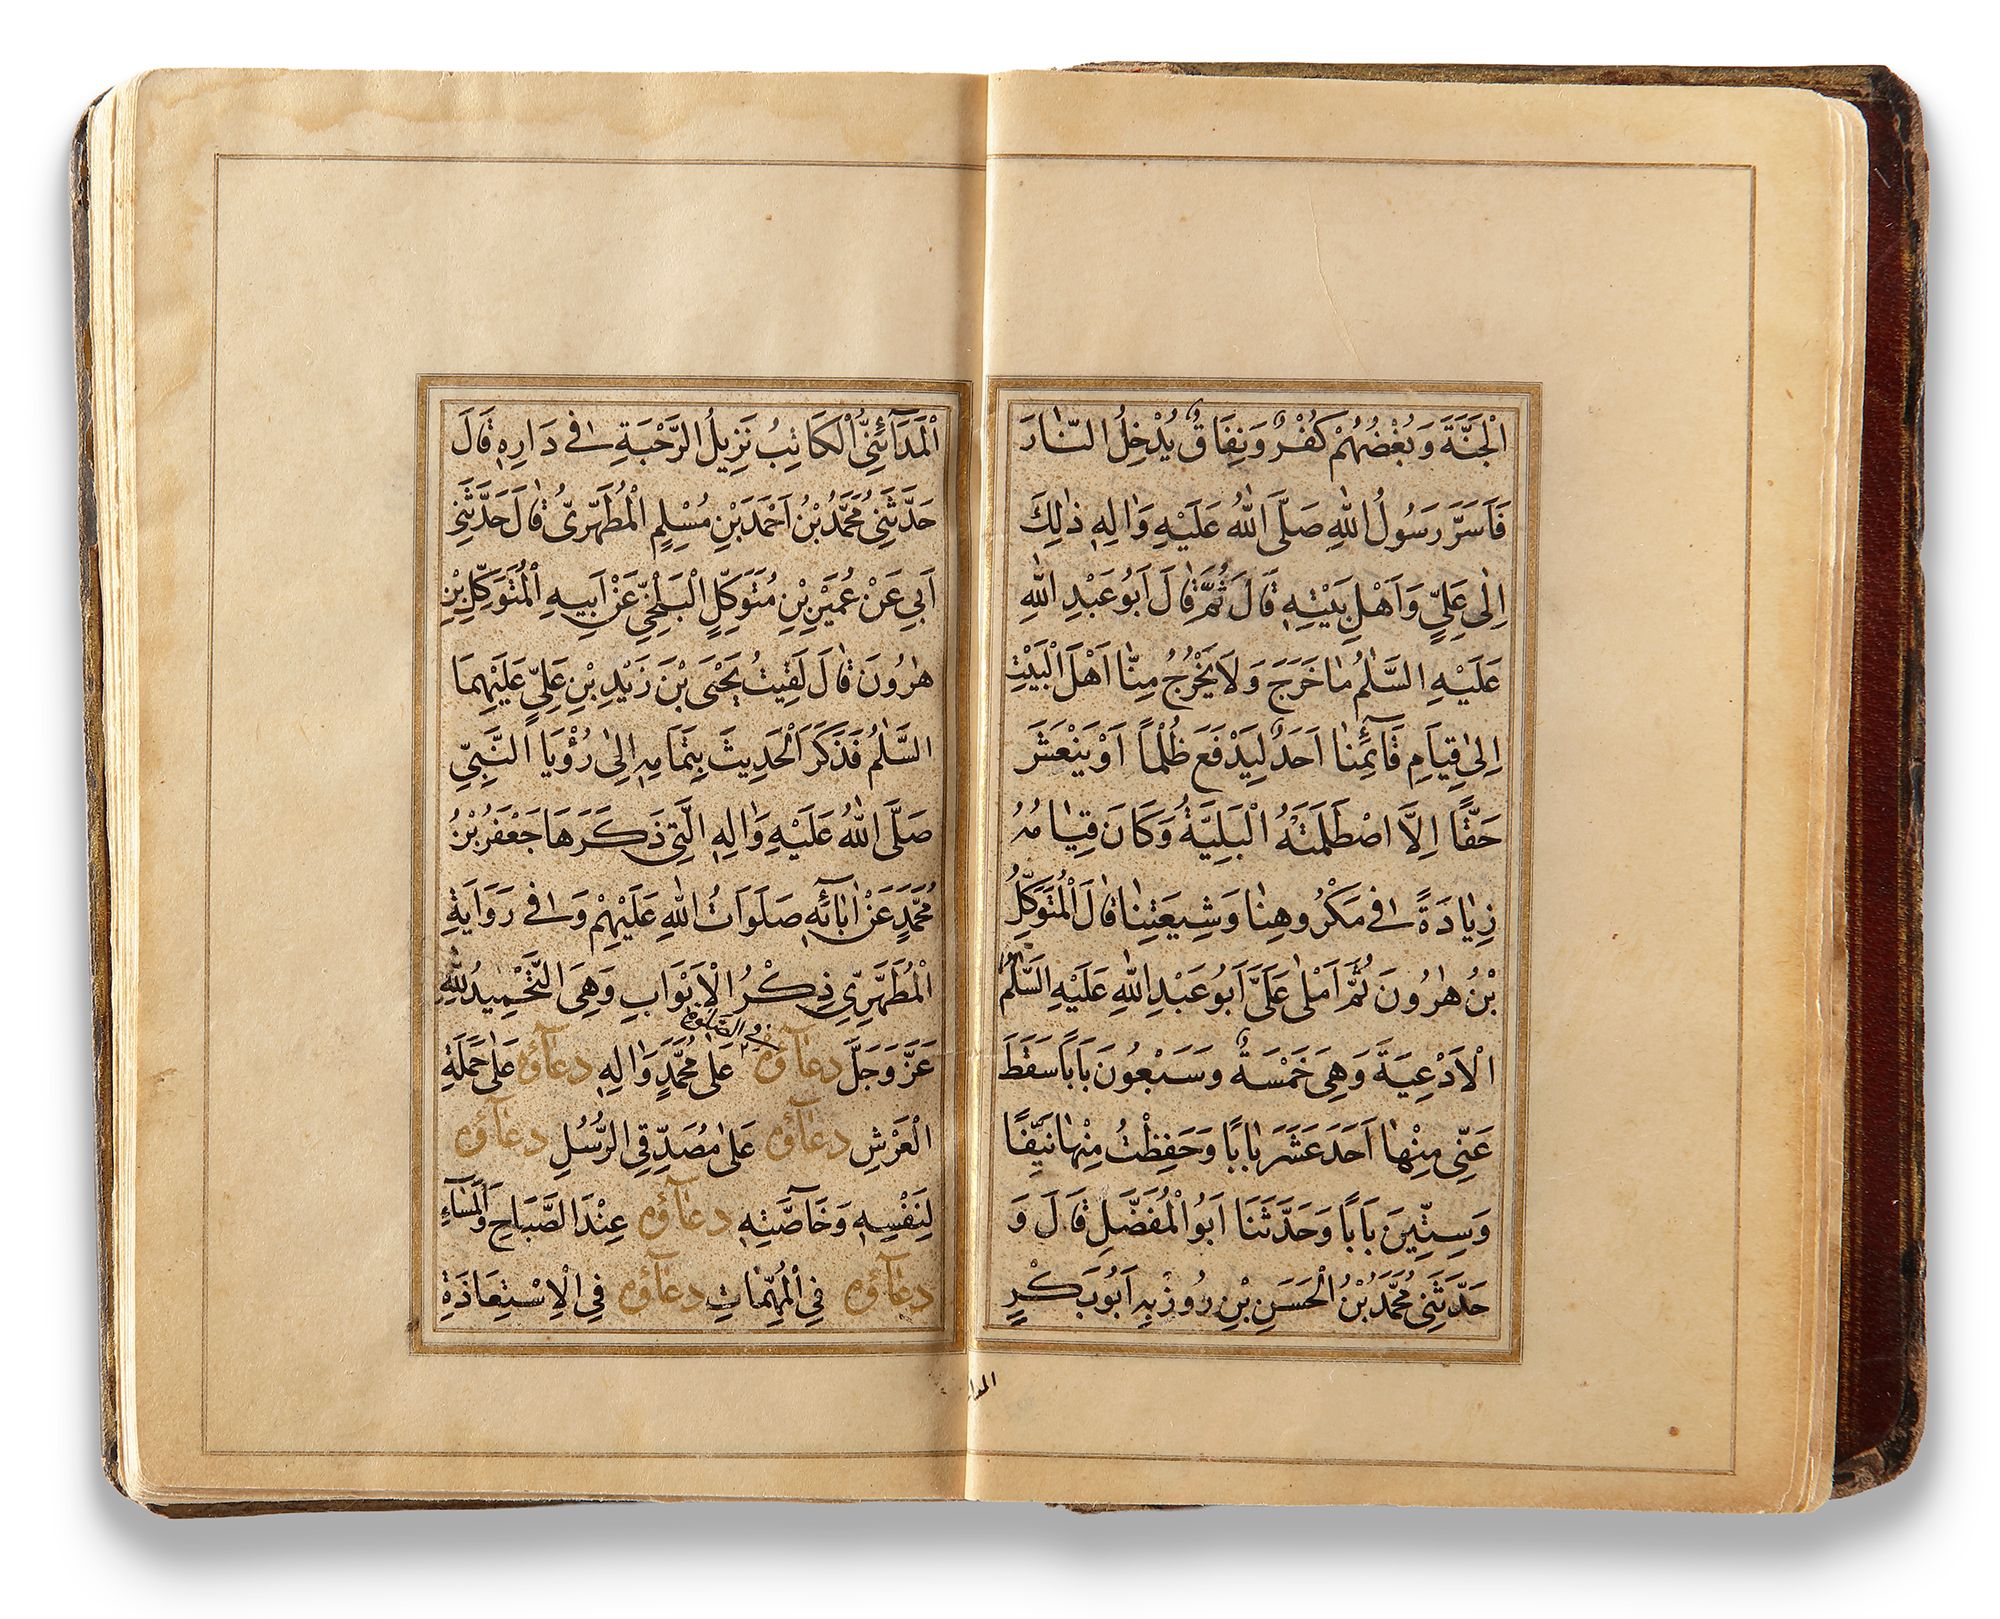 الْجَنَّةَ وَبُغْضُهُمْ كُفْرٌ وَنِفَاقٌ يُدْخِلُ النَّارَ
فَاَسَرَّ رَسُولُ اللّٰهِ صَلَّى اللّٰهُ عَلَيْهِ وَاٰلِهٖ ذٰلِكَ
اِلٰى عَلِيٍّ وَاَهْلِ بَيْتِهٖ قَالَ ثُمَّ قَالَ اَبُو عَبْدِ اللّٰهِ
عَلَيْهِ السَّلٰمُ مٰا خَرَجَ وَلَا يَخْرُجُ مِنّٰا اَهْلَ الْبَيْتِ
اِلىٰ قِيٰامِ قٰآئِمِنٰا اَحَدٌ لِيَدْفَعَ ظُلْمًا اَوْ يَنْعَشَ
حَقًّا اِلَّا اصْطَلَمَتْهُ الْبَلِيَّةُ وَكَانَ قِيٰامُهُ
زِيٰادَةً فِى مَكْرُوهِنٰا وَشِيعَتِنٰا قٰالَ الْمُتَوَكِّلُ
بْنُ هٰرُونَ ثُمَّ اَمْلٰى عَلَىَّ اَبُو عَبْدِ اللّٰهِ عَلَيْهِ السَّلٰمُ
الْاَدْعِيَةَ وَهِىَ خَمْسَةٌ وَسَبْعُونَ بَابًا سَقَطَ
عَنِّى مِنْهٰا اَحَدَ عَشَرَ بٰابًا وَحَفِظْتُ مِنْهٰا نَيِّفًا
وَسِتِّينَ بَابًا وَحَدَّثَنَا اَبُو الْمُفَضَّلِ قَالَ وَ
حَدَّثَنِى مُحَمَّدُ بْنُ الْحَسَنِ بْنِ رُوزْبِهِ اَبُو بَكْرٍ
المدا
الْمَدَآئِنِىُّ الْكَاتِبُ نَزِيلُ الرَّحْبَةِ فِى دَارِهٖ قٰالَ
حَدَّثَنِى مُحَمَّدُ بْنُ اَحْمَدَ بْنِ مُسْلِمٍ الْمُطَهَّرِىُّ قٰالَ حَدَّثَنِى
اَبِى عَنْ عُمَيْرِ بْنِ مُتَوَكِّلٍ الْبَلْخِىِّ عَنْ اَبِيهِ الْمُتَوَكِّلِ بْنِ
هٰرُونَ قٰالَ لَقِيتُ يَحْيَى بْنَ زَيْدِ بْنِ عَلِىٍّ عَلَيْهِمَا
السَّلٰمُ فَذَكَرَ الْحَدِيثَ بِتَمَامِهٖ اِلىٰ رُؤْيَا النَّبِىِّ
صَلَّى اللّٰهُ عَلَيْهِ وَاٰلِهٖ الَّتِى ذَكَرَهَا جَعْفَرُ بْنُ
مُحَمَّدٍ عَنْ اٰبَآئِهٖ صَلَوَاتُ اللّٰهِ عَلَيْهِمْ وَفِى رَوَايَةِ
الْمُطَهَّرِىِّ ذِكْرُ الْاَبْوَابِ وَهِىَ التَّحْمِيدُ لِلّٰهِ
عَزَّ وَجَلَّ دعآؤه فى الصلوة عَلٰى مُحَمَّدٍ وَاٰلِهٖ دعآؤه عَلٰى حَمَلَةِ
الْعَرْشِ دعآؤه عَلٰى مُصَدِّقِى الرُّسُلِ دعآؤه
لِنَفْسِهٖ وَخَآصَّتِهٖ دعآؤه عِنْدَ الصَّبَاحِ وَالْمَسَآءِ
دعآؤه فِى الْمُهِمّٰاتِ دعآؤه فِى الْاِسْتِعَاذَةِ